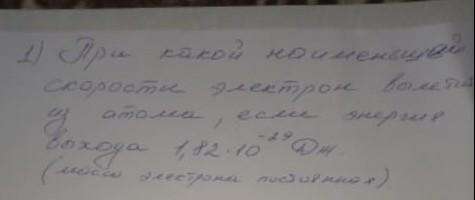 1) При какой наименьшей
скорости электрон вылетит
из атома, если энергия
выхода 1,82·10⁻²⁹ Дж.
(масса электрона постоянная)